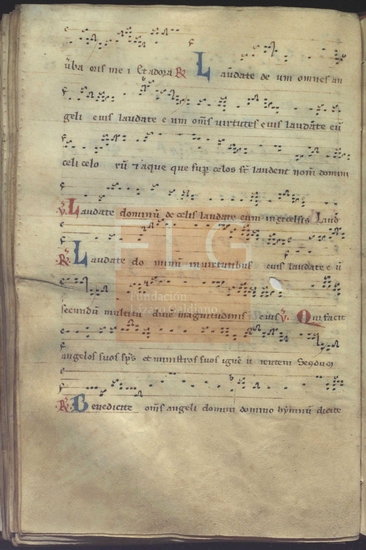 uba oris me i Et adora R Laudate de um omnes an
geli eius laudate e um oms virtutes eius laudate eu
celi celo rū & aque que sup celos st laudent nom domini
V Laudate dominū de celis laudate eum in excelsis Laud
R Laudate do minū in virtutibus eius laudate e ū
secundū multitu dinē magnitudinis eius V Qui facit
angelos suos sps et ministros suos ignē
R Benedicite oms angeli domini domino hymnū dicite
FLG
Fundación